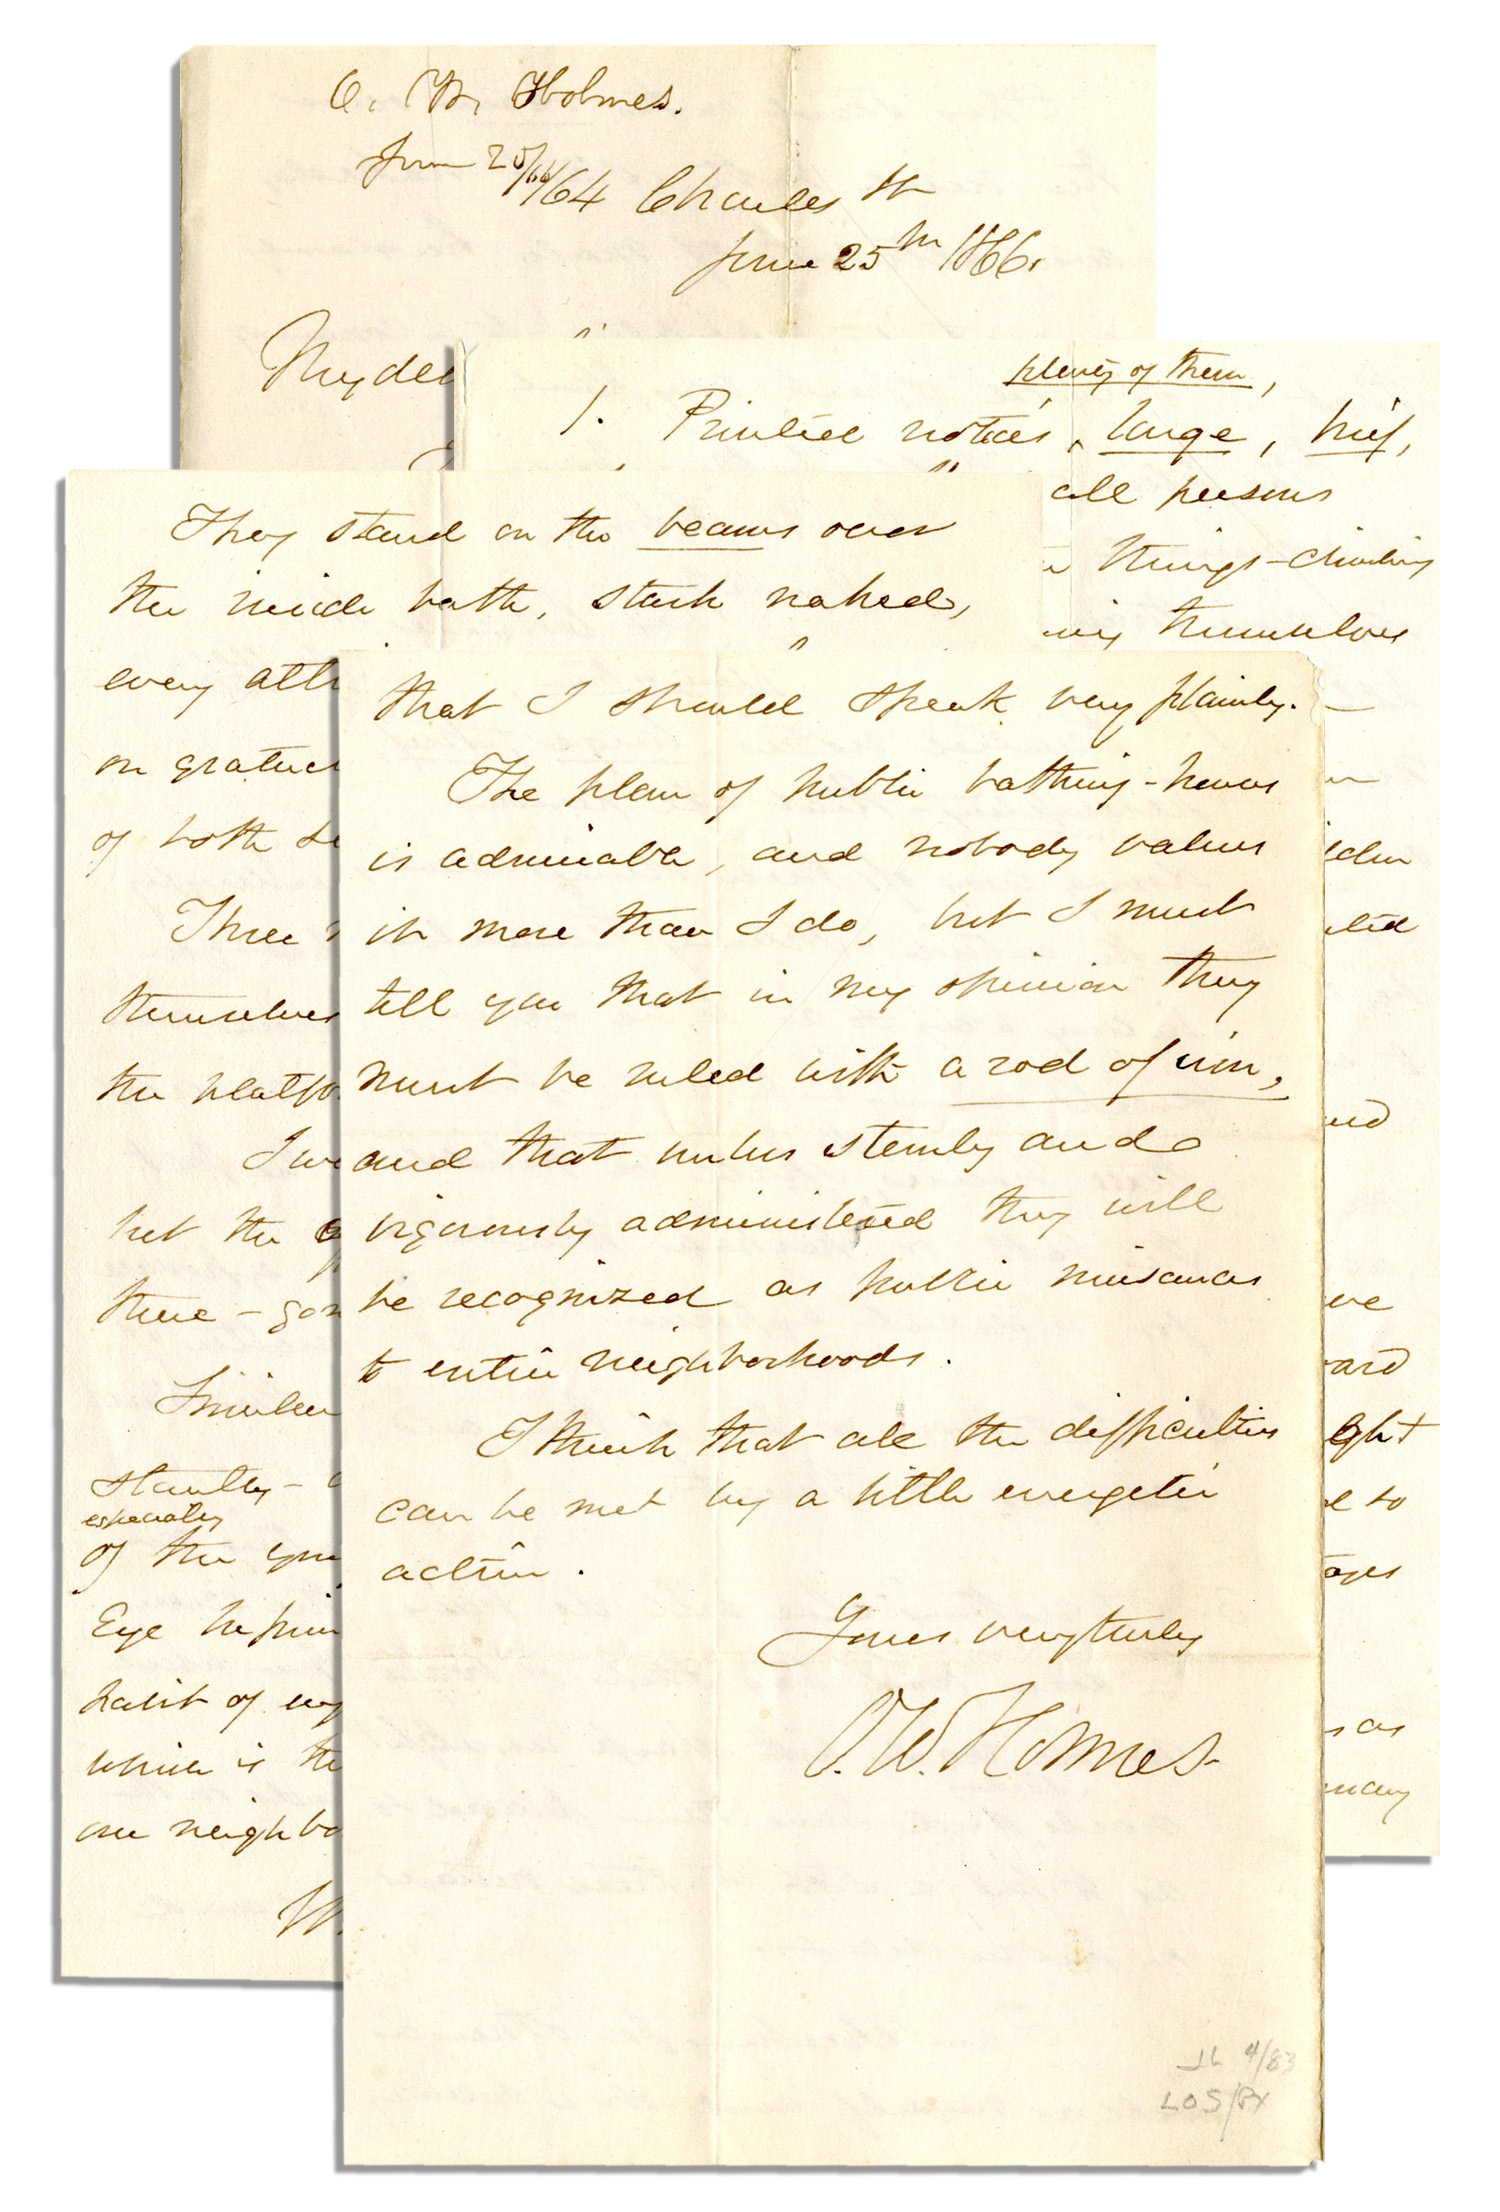 O. W. Holmes.
June 25/66
164 Charles St
June 25th 1866.
My dea
plenty of them,
1. Printed notices, large, brief,
all persons
things-climbing
themselves
They stand on the beams over
the inside bath, stark naked,
every atti
on gratui
of both se
Three
themselves
the platfo
I we
but the
there - gon
Similar
stantly -
especially
of the you
Eye
habit of
which is the
our neighbo
W
that I should speak very plainly.
The plan of public bathing-houses
is admirable, and nobody values
it more than I do, but I must
tell you that in my opinion they
must be ruled with a rod of iron,
and that unless sternly and
vigorously administered they will
be recognized as public nuisances
to entire neighborhoods.
I think that all the difficulties
can be met by a little energetic
action.
Yours very truly
O. W. Holmes.
ard
ght
so
s as
many
JL 4/83
LOS/PX